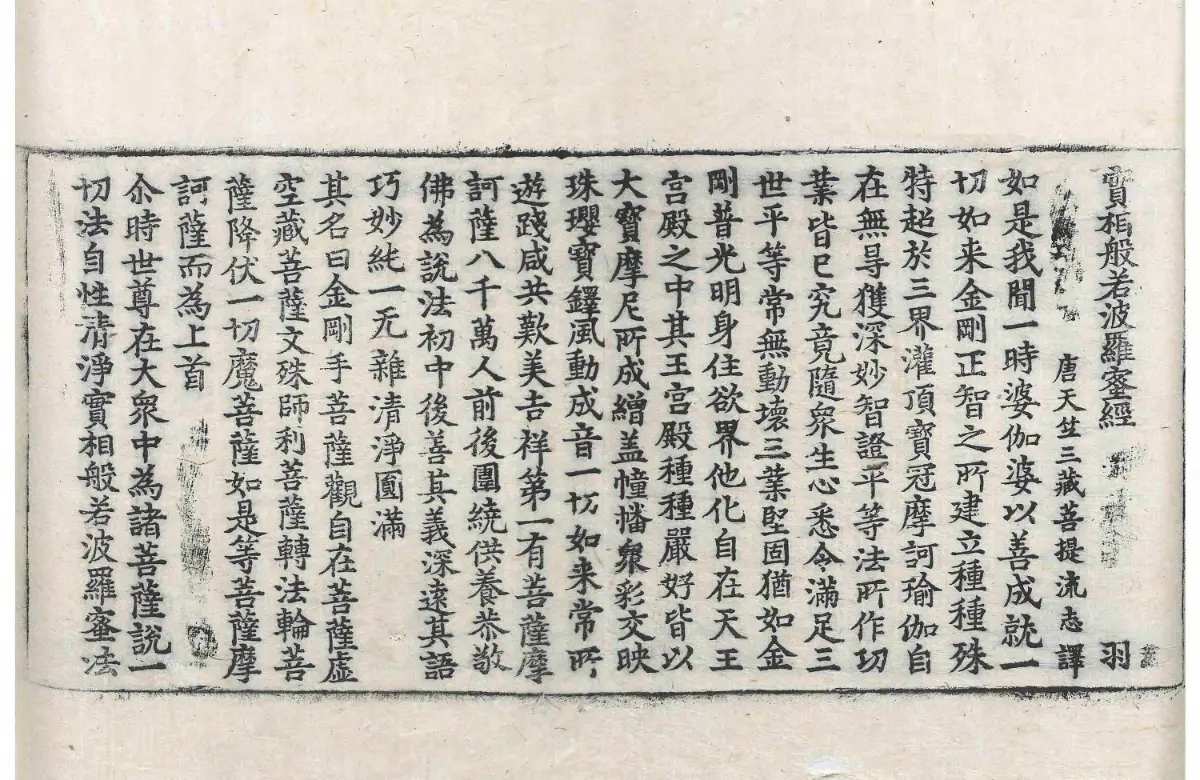 實相般若波羅蜜經 羽
唐天竺三藏菩提流志譯
如是我聞一時婆伽婆以善成就一
切如来金剛正智之所建立種種殊
特超於三界灌頂寶冠摩訶瑜伽自
在無㝵獲深妙智證平等法所作功
業皆已究竟隨衆生心悉令滿足三
世平等常無動壞三業堅固猶如金
剛普光明身住欲界他化自在天王
宫殿之中其王宫殿種種嚴好皆以
大寶摩尼所成繒盖幢幡衆彩交映
珠瓔寶鐸風動成音一切如来常所
遊踐咸共歎美吉祥第一有菩薩摩
訶薩八千萬人前後圍繞供養恭敬
佛為說法初中後善其義深遠其語
巧妙純一无雜清淨圓滿
其名曰金剛手菩薩觀自在菩薩虚
空藏菩薩文殊師利菩薩轉法輪菩
薩降伏一切魔菩薩如是等菩薩摩
訶薩而為上首
尒時世尊在大衆中為諸菩薩說一
切法自性清淨實相般若波羅蜜法